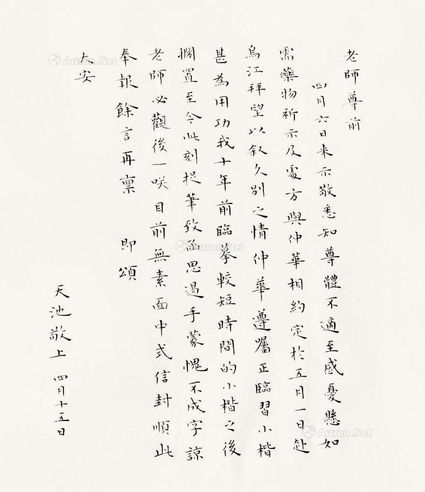 老師尊前
四月六日来示敬悉知尊體不適至感憂懸如
需藥物祈示及處方與仲華相約定於五月一日赴
烏江拜望以叙久別之情仲華遵囑正臨習小楷
甚為用功我十年前臨摹較短時間的小楷之後
擱置至今此刻提筆致函思過手蒙愧不成字諒
老師必觀後一咲目前無素面中式信封順此
奉報餘言再禀 即頌
大安
天池敬上 四月十五日
Artron.Net
Artron.Net
Artron.Net